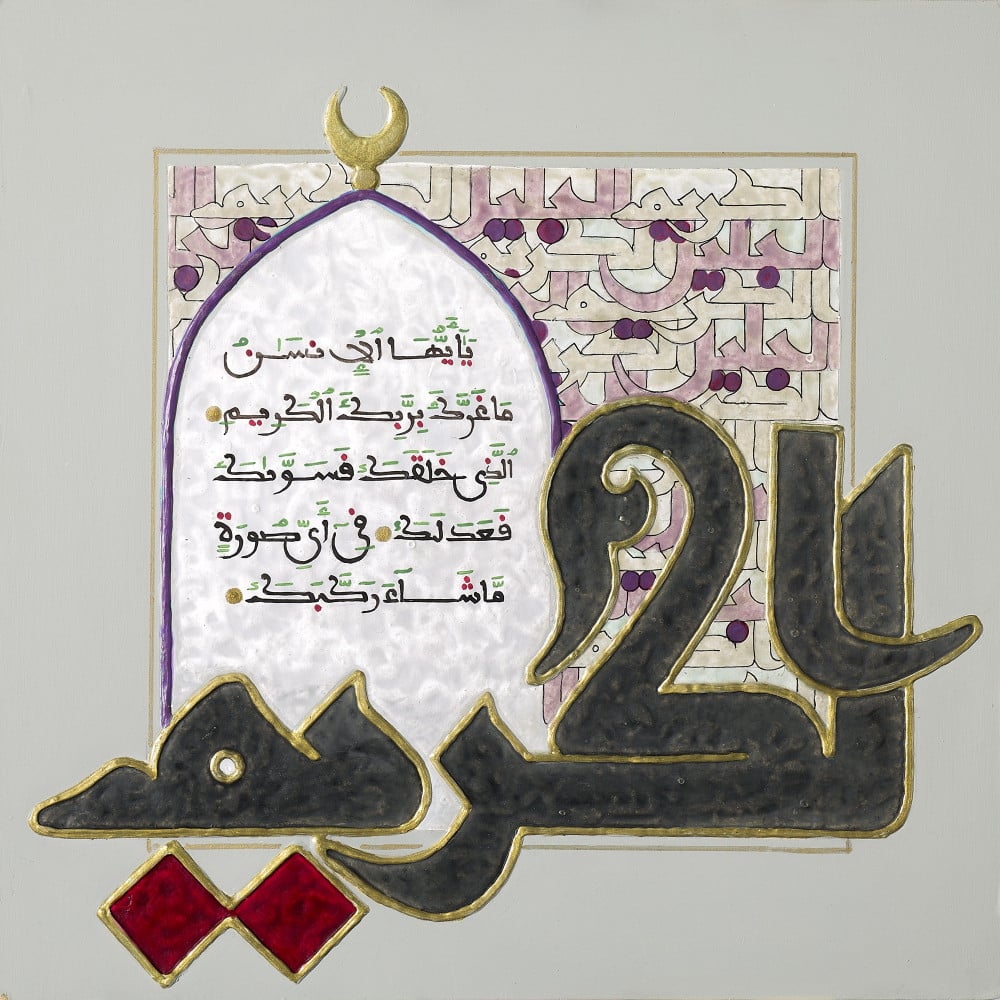 يَٰٓأَيُّهَا ٱلْإِنسَٰنُ
مَا غَرَّكَ بِرَبِّكَ ٱلْكَرِيمِ
ٱلَّذِى خَلَقَكَ فَسَوَّىٰكَ
فَعَدَلَكَ فِىٓ أَىِّ صُورَةٍ
مَّا شَآءَ رَكَّبَكَ
الكريم